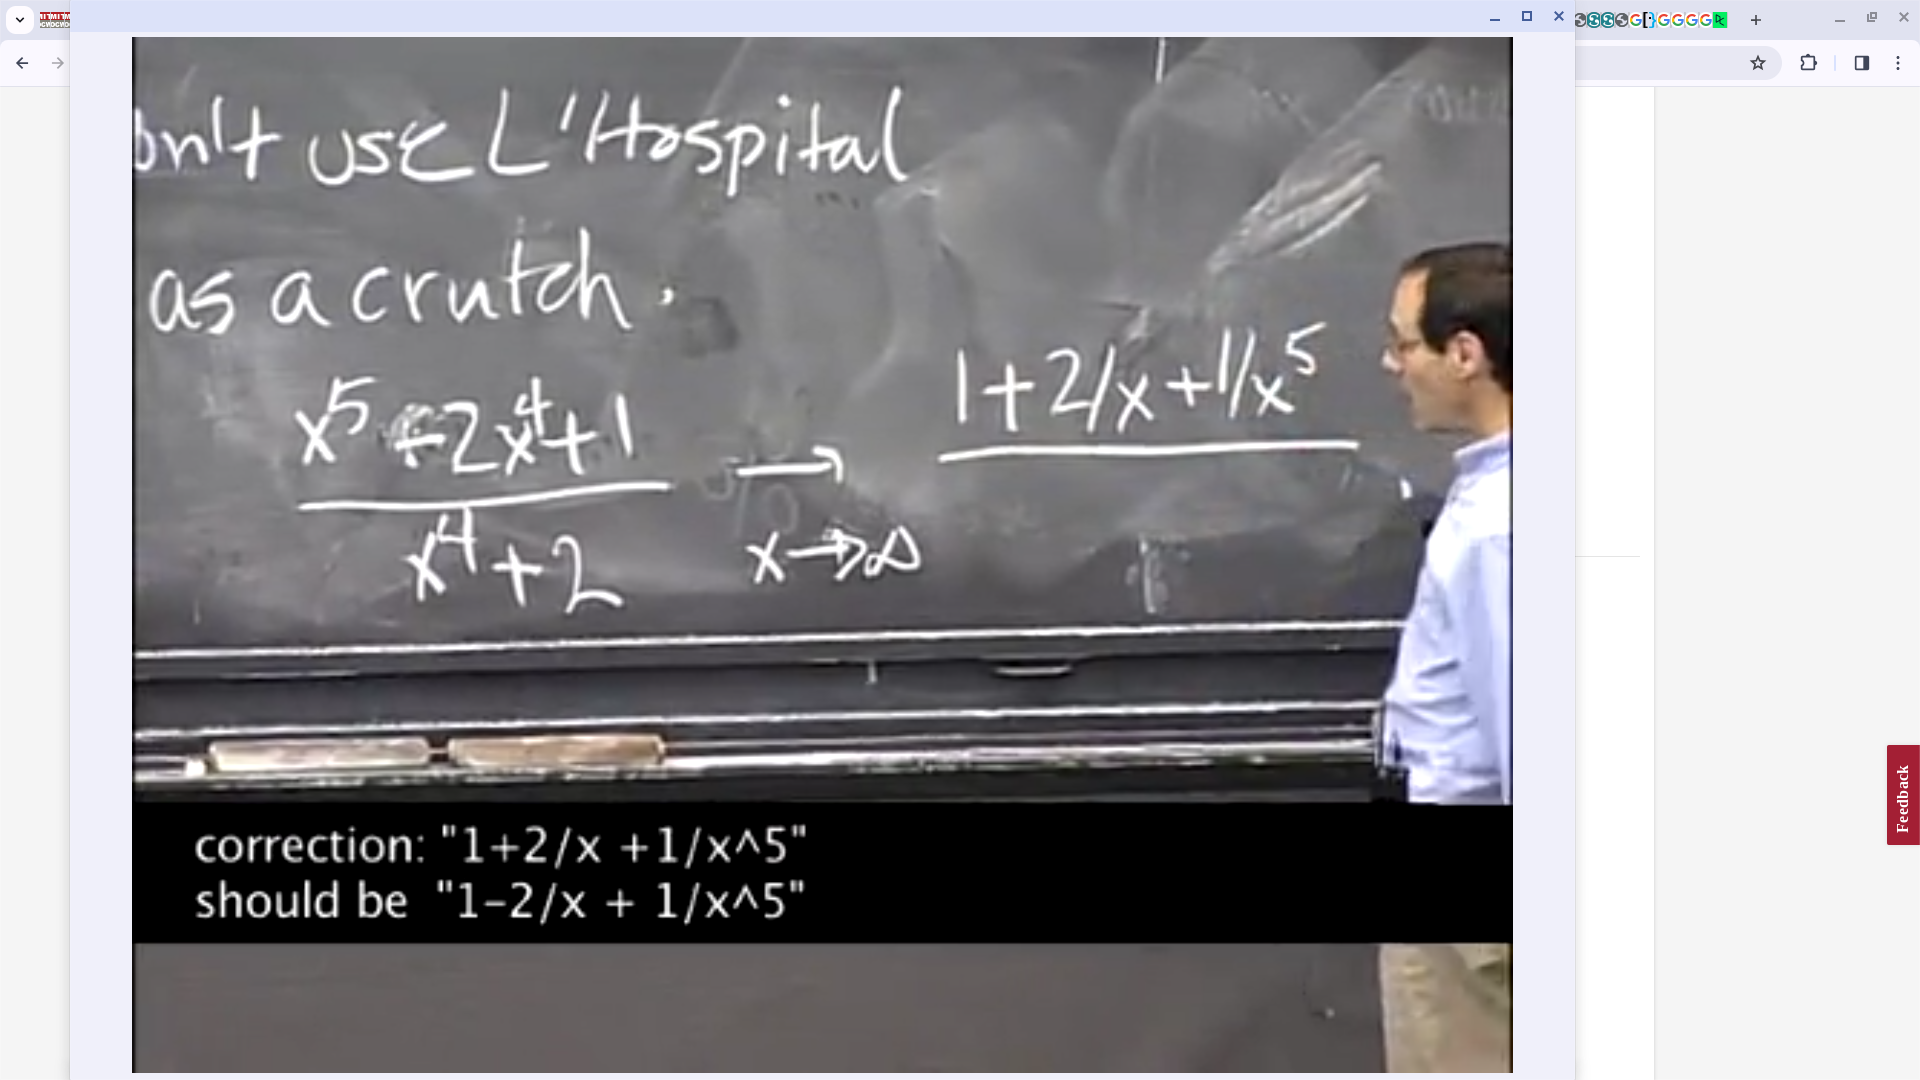 on't use L'Hospital
as a crutch.
x^5 - 2x^4 + 1
x^4 + 2
→
x→∞
1+2/x+1/x^5
1
correction: "1+2/x +1/x^5"
should be "1-2/x + 1/x^5"
Feedback